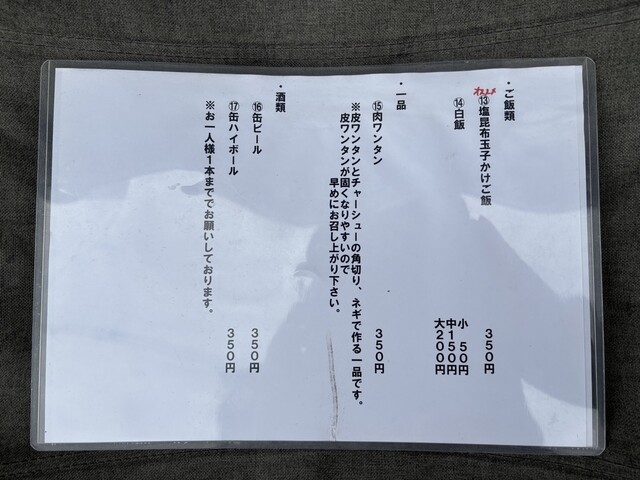 ・ご飯類
⑬塩昆布玉子かけご飯 350円
⑭白飯 小 50円
中150円
大200円
・一品
⑮肉ワンタン 350円
※皮ワンタンとチャーシューの角切り、ネギで作る一品です。
皮ワンタンが固くなりやすいので
早めにお召し上がり下さい。
・酒類
⑯缶ビール 350円
⑰缶ハイボール 350円
※お一人様1本まででお願いしております。